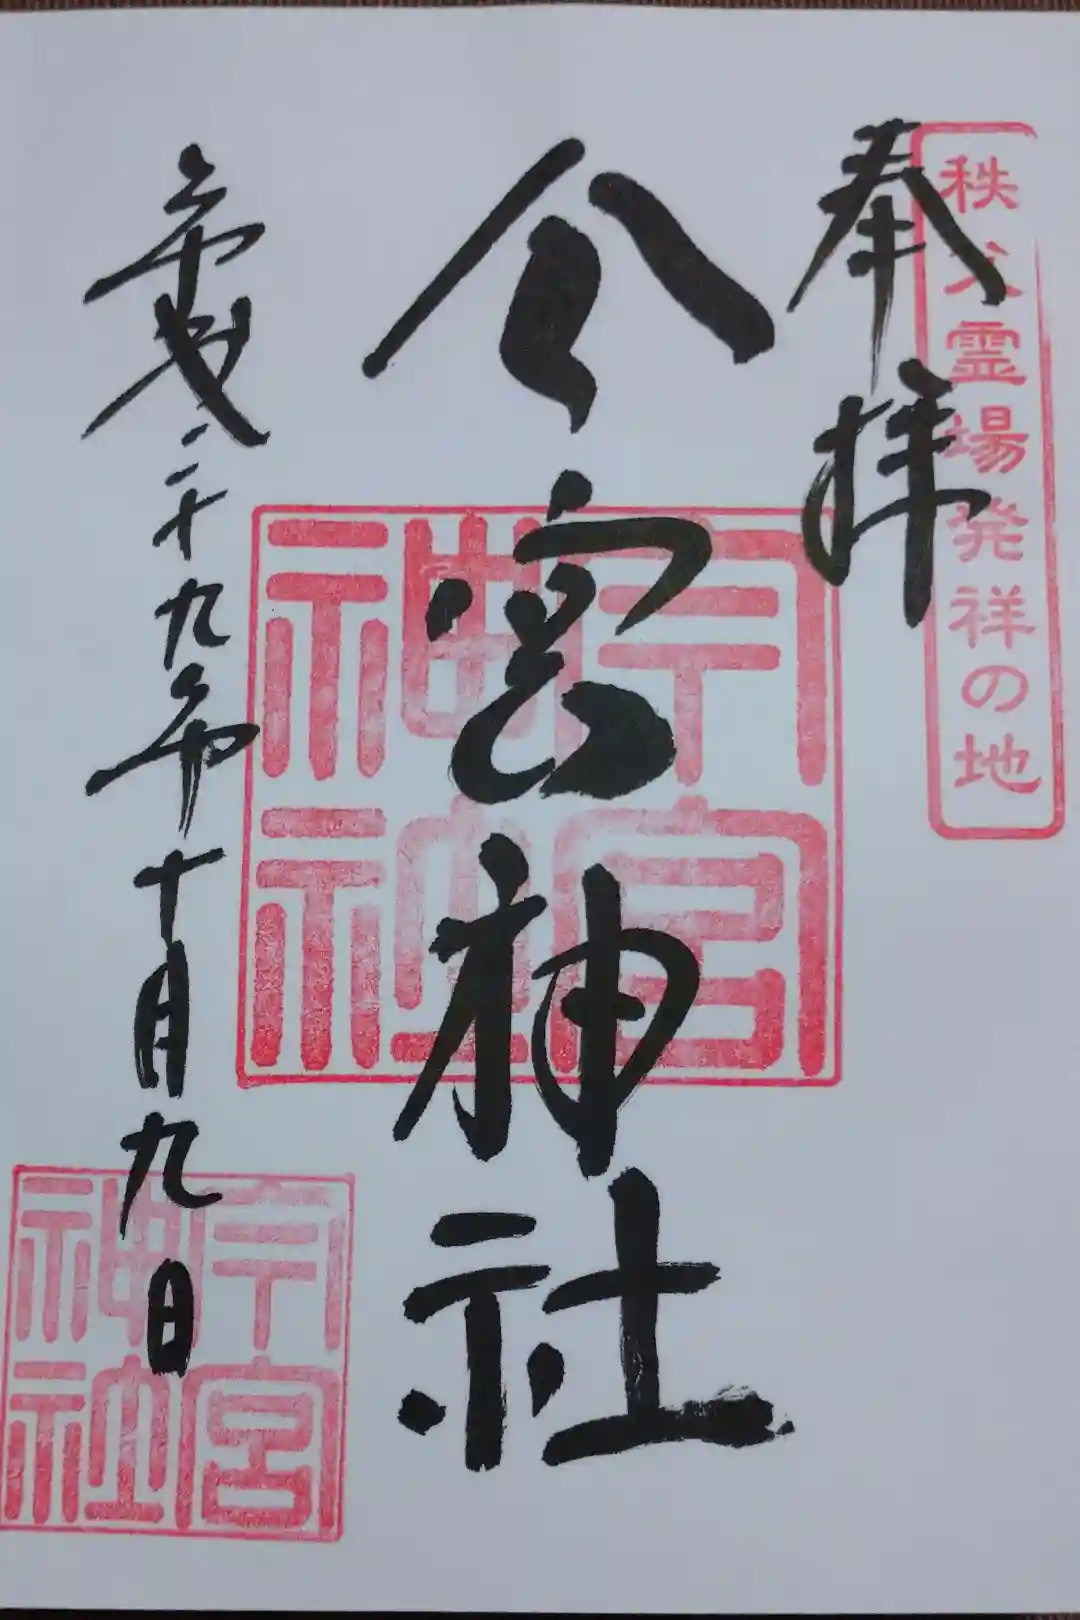 秩父霊場発祥の地
奉拝
今宮神社
今宮神社
平成二十九年十月九日
今宮神社